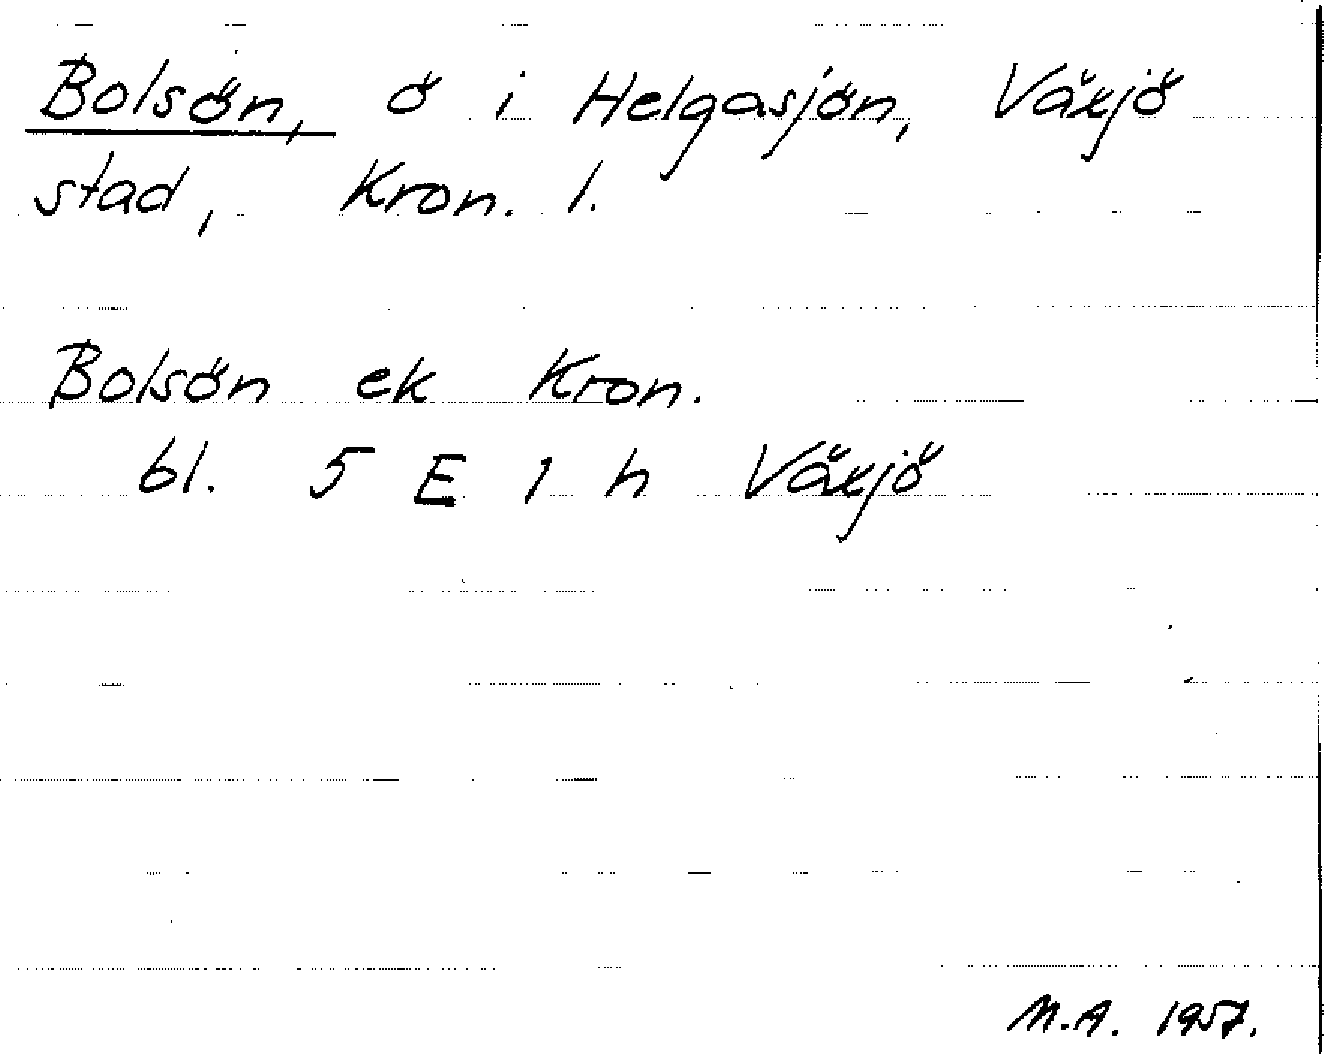 Bolsön, ö i Helgasjön, Växjö
stad, Kron. l.
Bolsön ek Kron.
bl. 5 E 1 h Växjö
M.A. 1957.